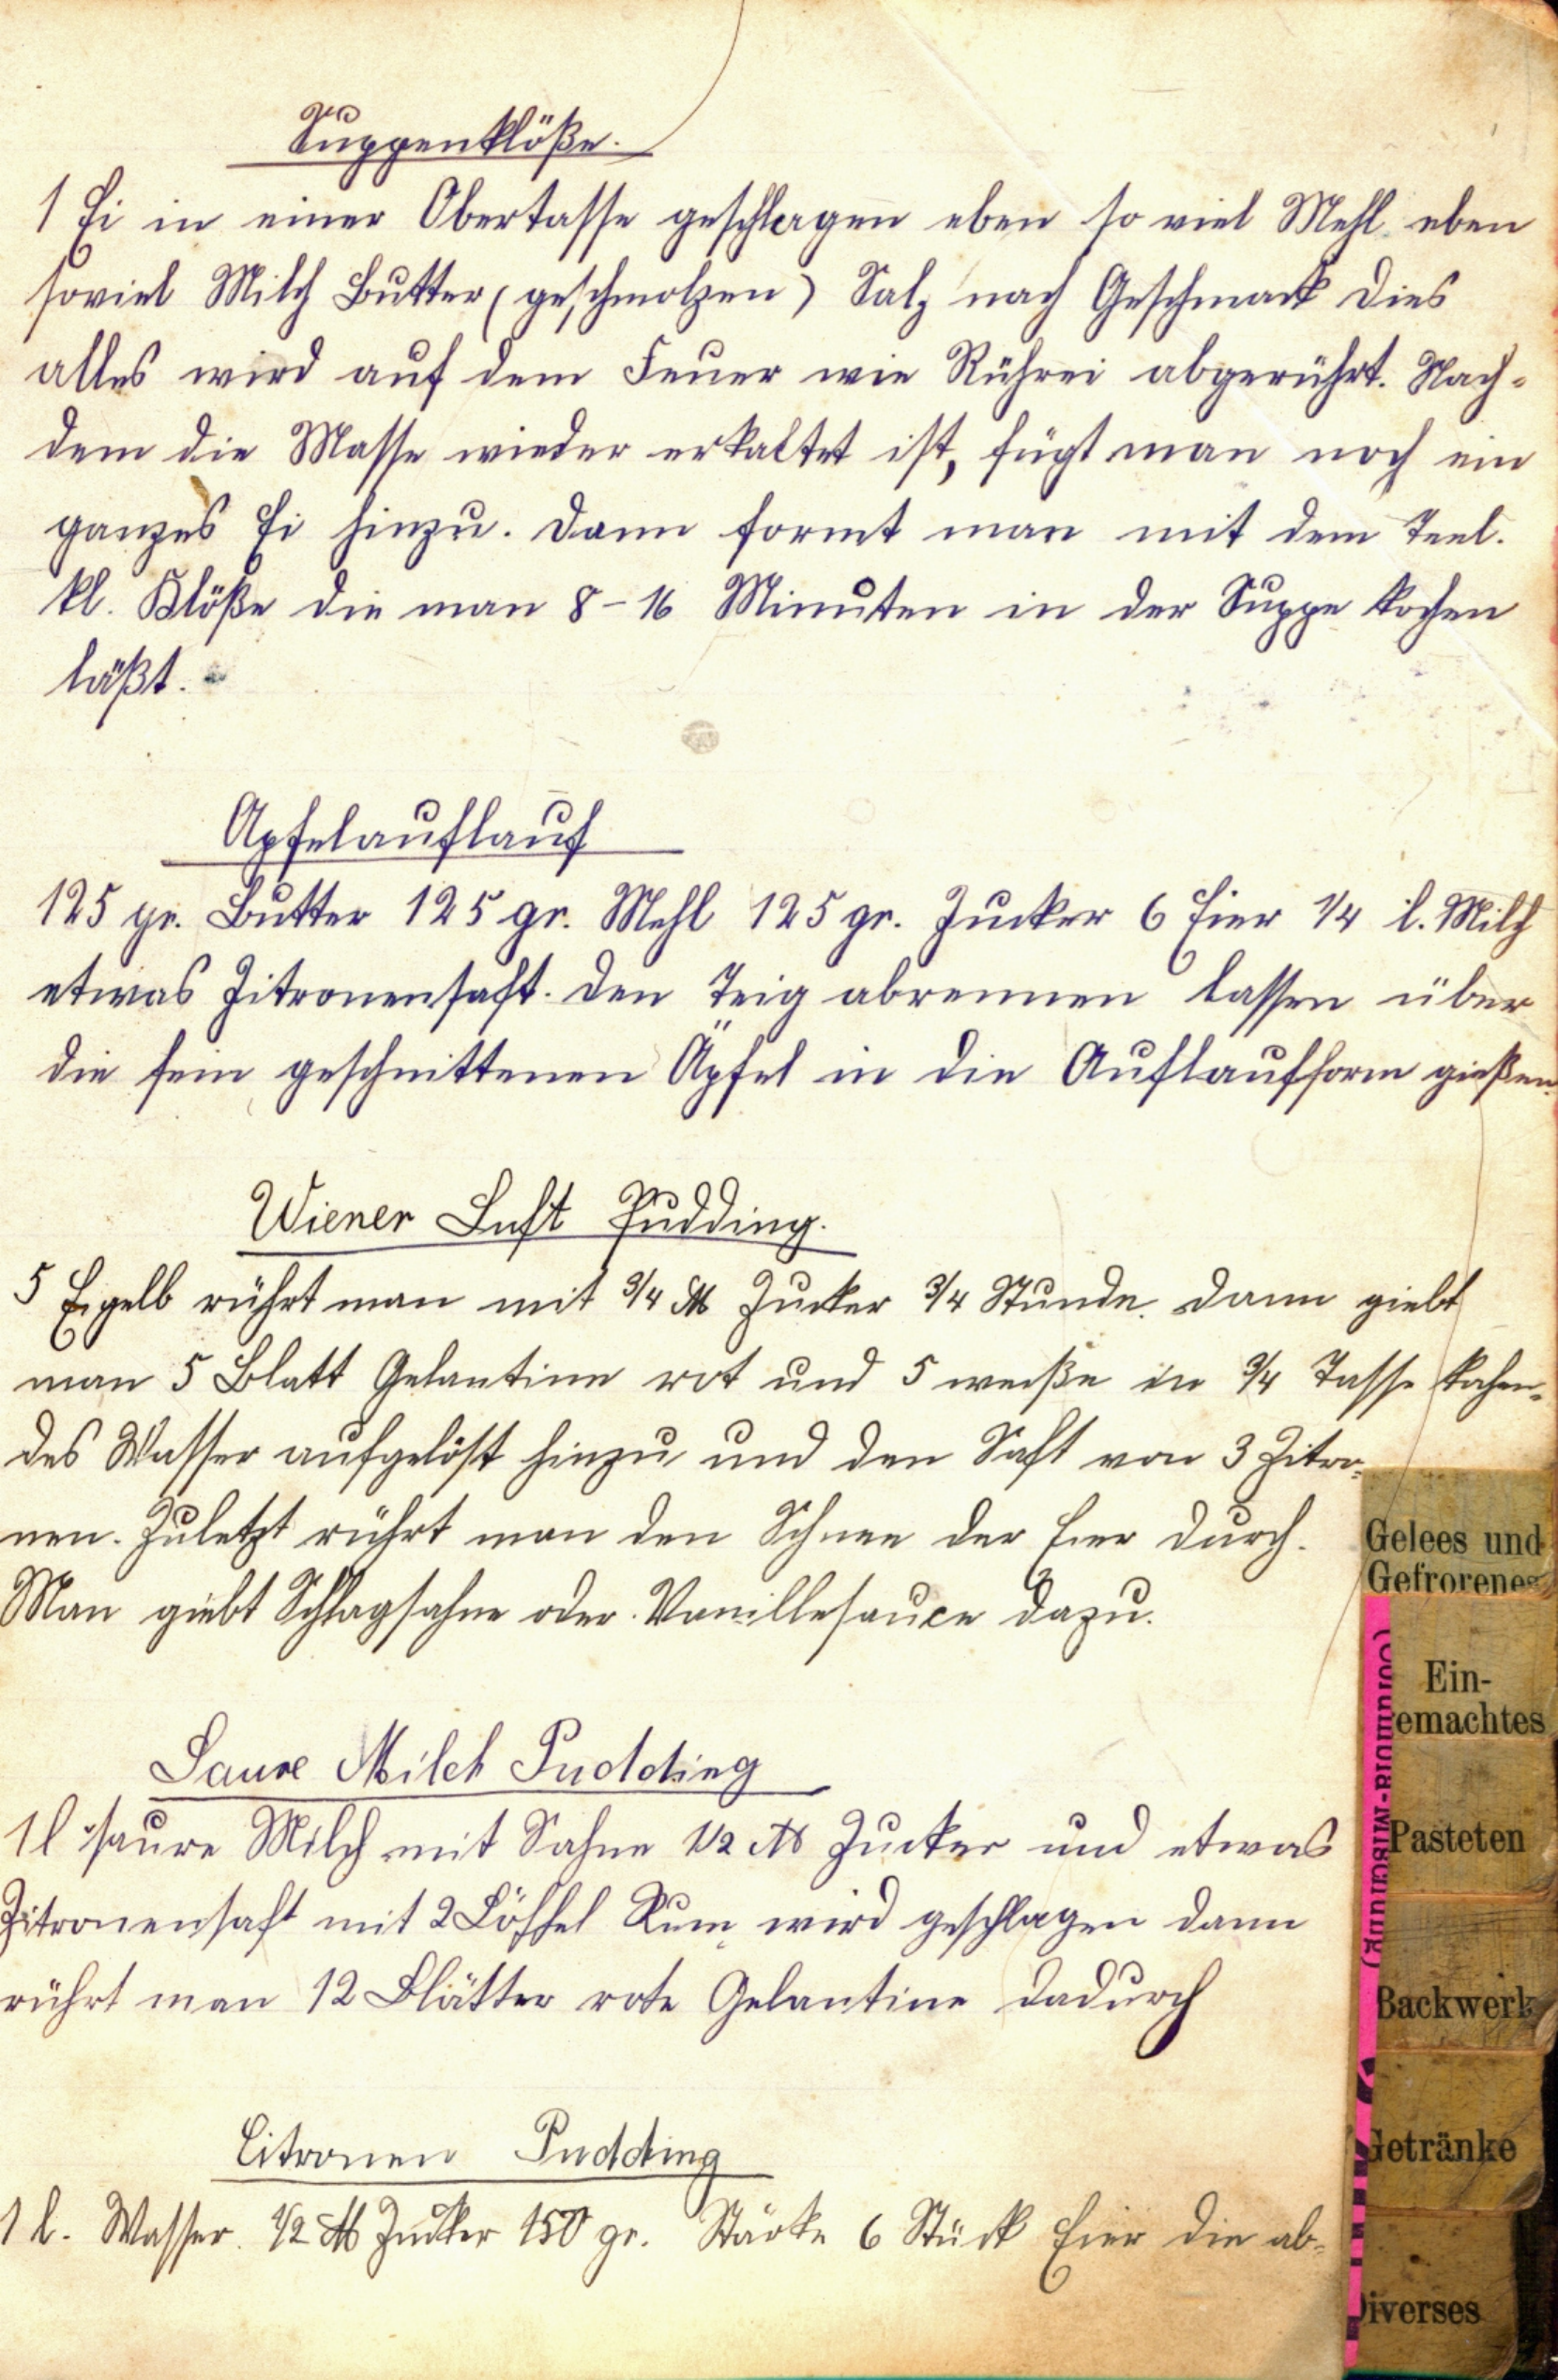 Suppenklöße.
1 Ei in einer Obertasse geschlagen eben so viel Mehl eben
soviel Milch Butter (geschmolzen) Salz nach Geschmack dies
alles wird auf dem Feuer wie Rührei abgerührt. Nach-
dem die Masse wieder erkaltet ist, fügt man noch ein
ganzes Ei hinzu. Dann formt man mit dem Teel.
kl. Klöße die man 8-16 Minuten in der Suppe kochen
läßt.
Apfelauflauf
125 gr. Butter 125 gr. Mehl 125 gr. Zucker 6 Eier 1/4 l. Milch
etwas Zitronensaft. Den Teig abrennen lassen über
die fein geschnittenen Äpfel in die Auflaufform gießen.
Wiener Luft Pudding.
5 Eigelb rührt man mit 3/4 ℔ Zucker 3/4 Stunde. Dann giebt
man 5 Blatt Gelantine rot und 5 weiße in 3/4 Tasse kohen-
des Wasser aufgelöst hinzu und den Saft von 3 Zitro-
nen. Zuletzt rührt man den Schnee der Eier durch.
Man giebt Schlagsahne oder Vanillesauce dazu.
Saure Milch Pudding
1 l saure Milch mit Sahne 1/2 ℔ Zucker und etwas
Zitronensaft mit 2 Löffel Rum wird geschlagen dann
rührt man 12 Blätter rote Gelantine dadurch
Citronen Pudding
1 l. Wasser. 1/2 ℔ Zucker 150 gr. Stärke 6 Stück Eier die ab-
Gelees und
Gefrorenes
Ein-
gemachtes
Pasteten
Backwerk
Getränke
Diverses